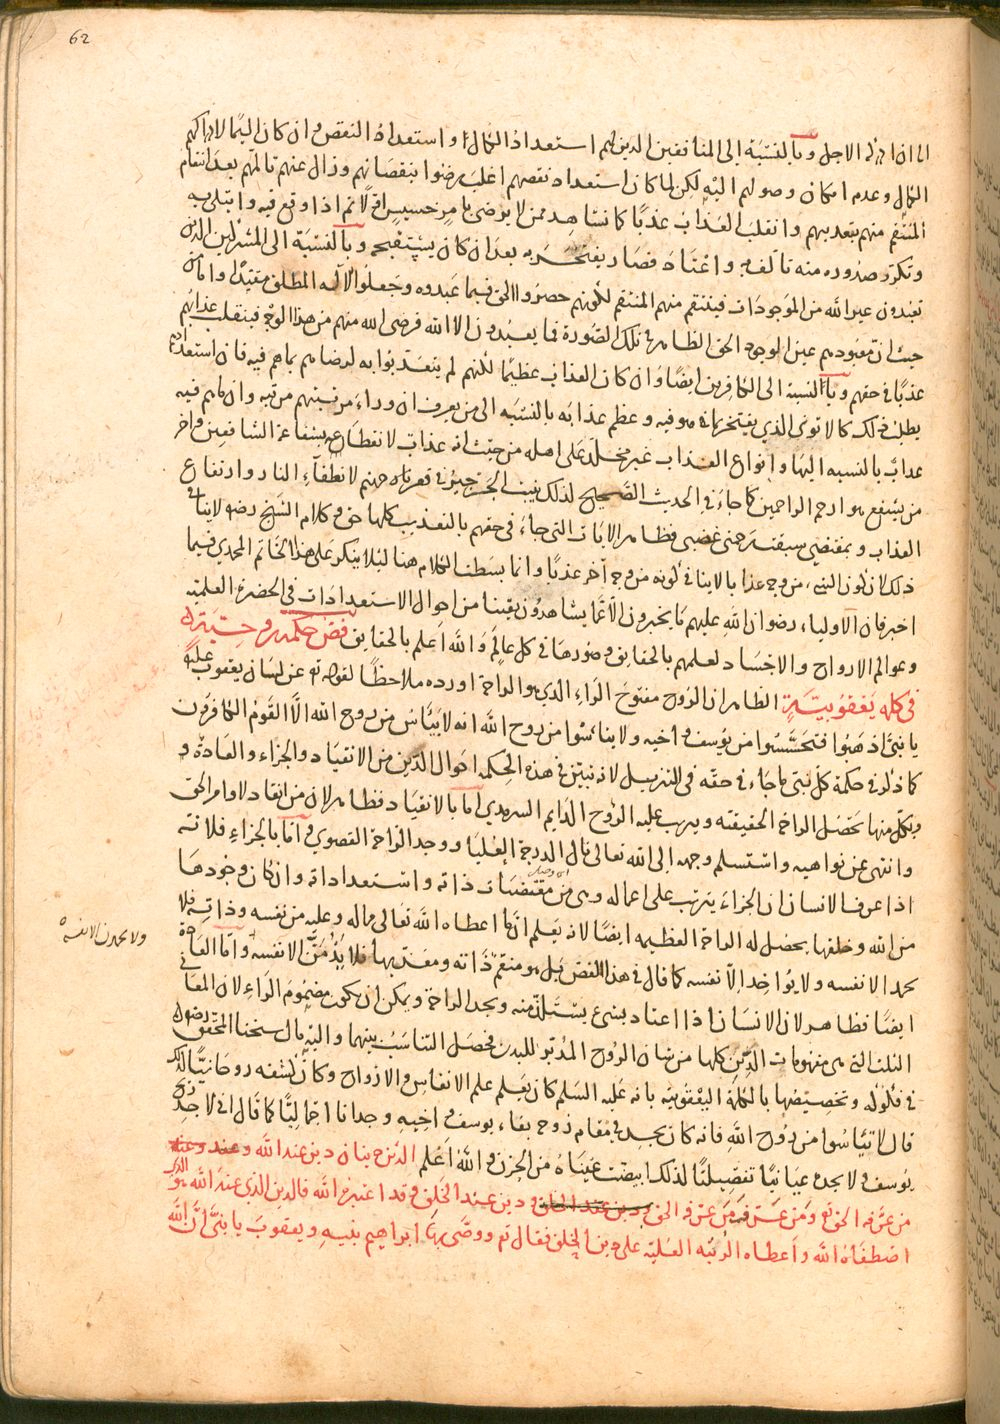 62
الى ان الاجل وبالنسبة الى المنافقين الذين لهم استعداد الكمال واستعداد النقص وان كان اليما لادراكهم
الكمال وعدم امكان وصولهم اليه لكن لما كان استعداد نقصهم اغلب رضوا بنقصانهم وزال عنهم تالمهم بعد انتقام
المنتقم منهم بتعذيبهم وانقلب العذاب عذبا كما نشاهد ممن لا يرضى بامر خسيس اولا ثم اذا وقع فيه وابتلى به
وتكرر صدوره منه تالف به واعتاد فصار يفتخر به بعد ان كان يستقبحه وبالنسبة الى المشركين الذين
يعبدون غير الله من الموجودات فينتقم منهم المنتقم لكونهم حصروا الحق فيما عبدوه وجعلوا الاله المطلق مقيدا واما من
حيث ان معبودهم عين الوجود الحق الظاهر في تلك الصورة فما يعبدون الا الله فرضى الله منهم من هذا الوجه فينقلب عذابهم
عذبا في حقهم وبالنسبة الى الكافرين ايضا وان كان العذاب عظيما لكنهم لم يتعذبوا به لرضاهم بما هم فيه فان استعدادهم
يطلب ذلك كالاتوني الذي يفتخر بما هو فيه وعظم عذابه بالنسبة الى من يعرف ان وراء مرتبتهم مرتبه وان ما هم فيه
عذاب بالنسبه اليها وانواع العذاب غير مخلد على اهله من حيث انه عذاب لانقطاعه بشفاعة الشافعين واخر
من يشفع هو ارحم الراحمين كما جاء في الحديث الصحيح لذلك ينبت الجرجير في قعر جهنم لانطفاء النار وارتفاع
العذاب وبمقتضى سبقت رحمتى غضبى فظاهر الايات التى جاء في حقهم بالتعذيب كلها حق وكلام الشيخ رضه لا ينافي
ذلك لان كون الشيء من وجه عذابا لا ينافي كونه من وجه آخر عذبا وانما بسطنا الكلام هنا ليلا ينكر على هذا الخاتم المحمدي فيما
اخبر فان الاولياء رضوان الله عليهم ما يخبرون الا عما يشاهدون يقينا من احوال الاستعدادات في الحضرة العلمية
وعوالم الارواح والاجساد لعلمهم بالحقايق وصورها في كل عالم والله اعلم بالحقايق فص حكمة روحية
في كلمة يعقوبية الظاهر ان الروح مفتوح الراء الذي هو الراحة اورده ملاحظا لقوله تع عن لسان يعقوب عليه
يا بني اذهبوا فتحسسوا من يوسف واخيه ولا تيأسوا من روح الله انه لا ييأس من روح الله الا القوم الكافرون
كما ذكر في حكمة كل نبى ما جاء في حقه في التنزيل لانه يبين في هذه الحكمة احوال الدين من الانقياد والجزاء والعادة و
وبكل منها تحصل الراحة الحقيقيه ويرتب عليه الروح الدايم السرمدي اما بالانقياد فظاهر لان من انقاد لاوامر الحق
وانتهى عن نواهيه واستسلم وجهه الى الله تعالى نال الدرجة العليا ووجد الراحة القصوى واما بالجزاء فلانه
اذا عرف الانسان ان الجزاء يترتب على اعماله وهى من مقتضيات ذاته واستعداداته وان كان وجودها
من الله وخلقها يحصل له الراحة العظيمه ايضا لانه يعلم ان ما اعطاه الله تعالى ماله وعليه من نفسه وذاته فلا
يحمد الا نفسه ولا يؤاخذ الا نفسه كما قال في هذا الفص بل هو منعم ذاته ومعذبها فلا يذمن الا نفسه واما العادة
ولا يحمدن الا نفسه
ايضا فظاهر لان الانسان اذا اعتاد بشيء يستلذ منه ويجد الراحة ويمكن ان يكون مضموم الراء لان المعانى
الثلث التى هى مفهومات الدين كلها من شان الروح المدبر للبدن فحصل التناسب بينهما واليه مال شيخنا المحقق رضه
في فكوكه وتخصيصها بالكلمة اليعقوبيه بانه عليه السلم كان يعلم علم الانفاس والارواح وكان كشفه روحانيا لذلك
قال لا تيأسوا من روح الله فانه كان يجد في مقام روحه بقاء يوسف واخيه وجدانا اجماليا كما قال انى لاجد ريح
يوسف ولا يجده عيانيا تفصيليا لذلك ابيضت عيناه من الحزن والله اعلم الدين دينان دين عند الله وعند
من عرفه الحق تع ومن عرف من عرفه الحق ودين عند الخلق وقد اعتبره الله فالدين الذي عند الله هو الذي
اصطفاه الله واعطاه الرتبه العليه على دين الخلق فقال تع ووصى بها ابراهيم بنيه ويعقوب يا بني ان الله